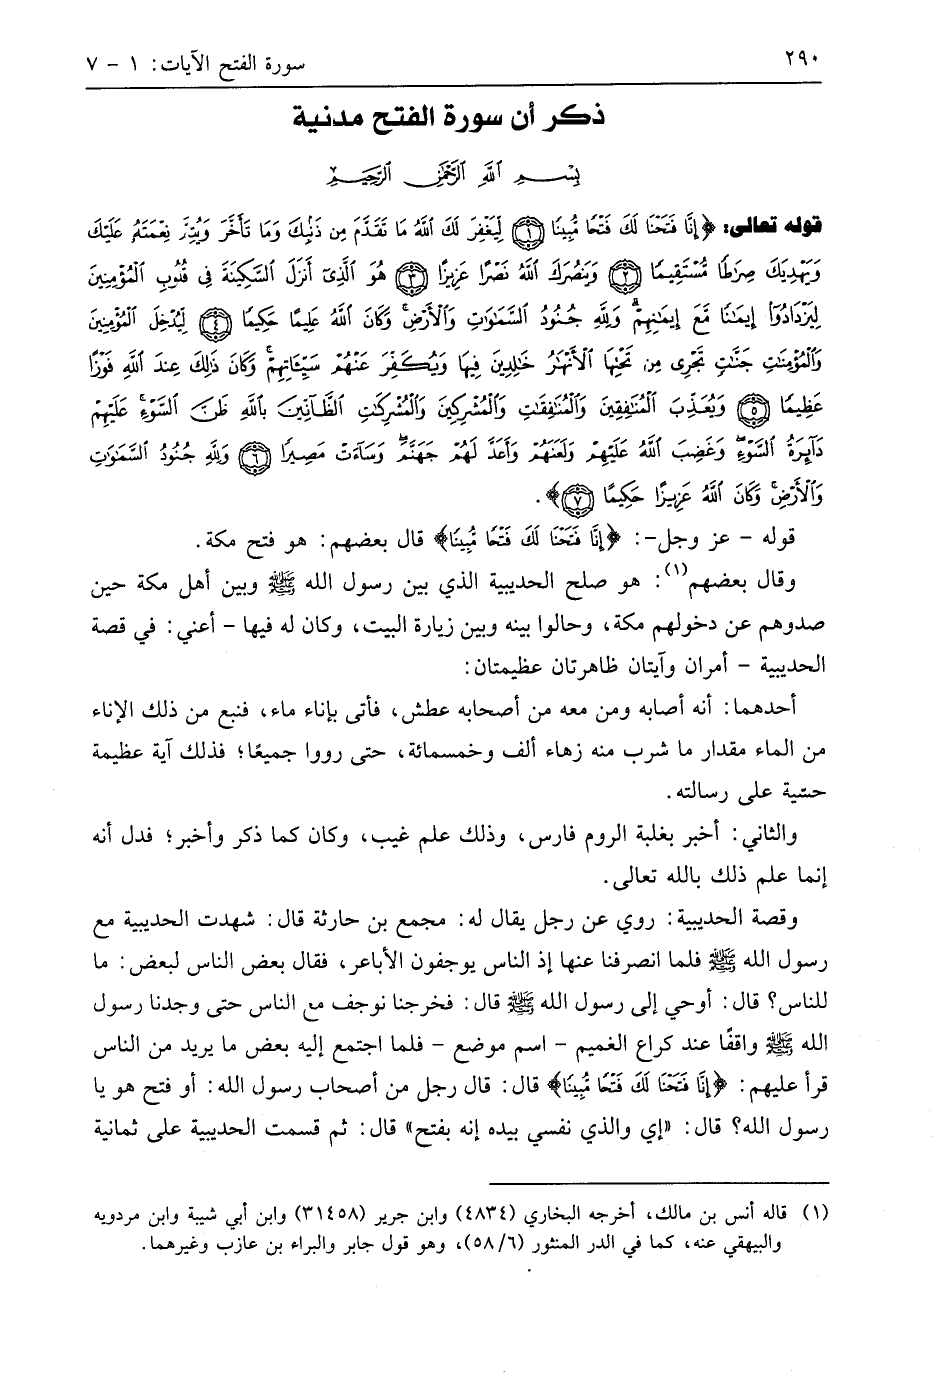 ٢٩٠
سورة الفتح الآيات: ١ - ٧
ذكر أن سورة الفتح مدنية
بِسْمِ ٱللَّهِ ٱلرَّحْمَٰنِ ٱلرَّحِيمِ
قوله تعالى: ﴿إِنَّا فَتَحْنَا لَكَ فَتْحًا مُّبِينًا ۝١ لِّيَغْفِرَ لَكَ ٱللَّهُ مَا تَقَدَّمَ مِن ذَنۢبِكَ وَمَا تَأَخَّرَ وَيُتِمَّ نِعْمَتَهُۥ عَلَيْكَ
وَيَهْدِيَكَ صِرَٰطًا مُّسْتَقِيمًا ۝٢ وَيَنصُرَكَ ٱللَّهُ نَصْرًا عَزِيزًا ۝٣ هُوَ ٱلَّذِىٓ أَنزَلَ ٱلسَّكِينَةَ فِى قُلُوبِ ٱلْمُؤْمِنِينَ
لِيَزْدَادُوٓا۟ إِيمَٰنًا مَّعَ إِيمَٰنِهِمْ ۗ وَلِلَّهِ جُنُودُ ٱلسَّمَٰوَٰتِ وَٱلْأَرْضِ ۚ وَكَانَ ٱللَّهُ عَلِيمًا حَكِيمًا ۝٤ لِّيُدْخِلَ ٱلْمُؤْمِنِينَ
وَٱلْمُؤْمِنَٰتِ جَنَّٰتٍ تَجْرِى مِن تَحْتِهَا ٱلْأَنْهَٰرُ خَٰلِدِينَ فِيهَا وَيُكَفِّرَ عَنْهُمْ سَيِّـَٔاتِهِمْ ۚ وَكَانَ ذَٰلِكَ عِندَ ٱللَّهِ فَوْزًا
عَظِيمًا ۝٥ وَيُعَذِّبَ ٱلْمُنَٰفِقِينَ وَٱلْمُنَٰفِقَٰتِ وَٱلْمُشْرِكِينَ وَٱلْمُشْرِكَٰتِ ٱلظَّآنِّينَ بِٱللَّهِ ظَنَّ ٱلسَّوْءِ ۚ عَلَيْهِمْ
دَآئِرَةُ ٱلسَّوْءِ ۖ وَغَضِبَ ٱللَّهُ عَلَيْهِمْ وَلَعَنَهُمْ وَأَعَدَّ لَهُمْ جَهَنَّمَ ۖ وَسَآءَتْ مَصِيرًا ۝٦ وَلِلَّهِ جُنُودُ ٱلسَّمَٰوَٰتِ
وَٱلْأَرْضِ ۚ وَكَانَ ٱللَّهُ عَزِيزًا حَكِيمًا ۝٧﴾.
قوله - عز وجل-: ﴿إِنَّا فَتَحْنَا لَكَ فَتْحًا مُّبِينًا﴾ قال بعضهم: هو فتح مكة.
وقال بعضهم(١): هو صلح الحديبية الذي بين رسول الله ﷺ وبين أهل مكة حين
صدوهم عن دخولهم مكة، وحالوا بينه وبين زيارة البيت، وكان له فيها - أعني: في قصة
الحديبية - أمران وآيتان ظاهرتان عظيمتان:
أحدهما: أنه أصابه ومن معه من أصحابه عطش، فأتى بإناء ماء، فنبع من ذلك الإناء
من الماء مقدار ما شرب منه زهاء ألف وخمسمائة، حتى رووا جميعًا؛ فذلك آية عظيمة
حسّية على رسالته.
والثاني: أخبر بغلبة الروم فارس، وذلك علم غيب، وكان كما ذكر وأخبر؛ فدل أنه
إنما علم ذلك بالله تعالى.
وقصة الحديبية: روي عن رجل يقال له: مجمع بن حارثة قال: شهدت الحديبية مع
رسول الله ﷺ فلما انصرفنا عنها إذ الناس يوجفون الأباعر، فقال بعض الناس لبعض: ما
للناس؟ قال: أوحي إلى رسول الله ﷺ قال: فخرجنا نوجف مع الناس حتى وجدنا رسول
الله ﷺ واقفًا عند كراع الغميم - اسم موضع - فلما اجتمع إليه بعض ما يريد من الناس
قرأ عليهم: ﴿إِنَّا فَتَحْنَا لَكَ فَتْحًا مُّبِينًا﴾ قال: قال رجل من أصحاب رسول الله: أو فتح هو يا
رسول الله؟ قال: «إي والذي نفسي بيده إنه بفتح» قال: ثم قسمت الحديبية على ثمانية
(١) قاله أنس بن مالك، أخرجه البخاري (٤٨٣٤) وابن جرير (٣١٤٥٨) وابن أبي شيبة وابن مردويه
والبيهقي عنه، كما في الدر المنثور (٥٨/٦)، وهو قول جابر والبراء بن عازب وغيرهما.